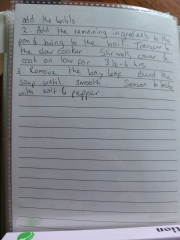 add the lentils
2. Add the remaining ingredients to the
pan & bring to the boil. Transfer to
the slow cooker. Stir well, cover &
cook on low for 3½-4 hrs
3. Remove the bay leaf. Blend the
soup until smooth. Season to taste
with salt & pepper.